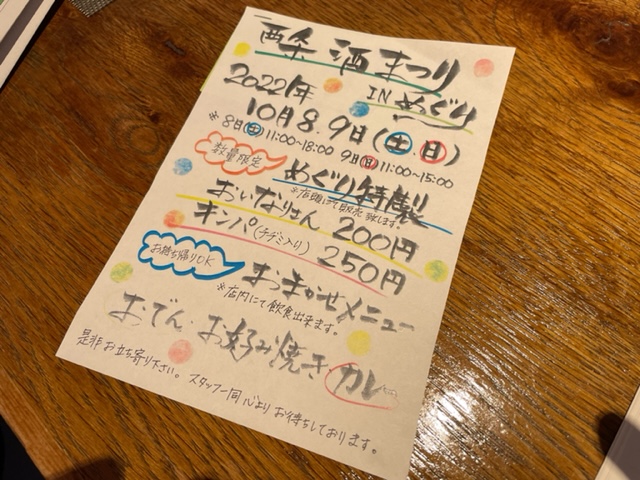 西条 酒まつり
IN めぐり
2022年
10月8.9日(土.日)
※8日(土)11:00~18:00 9日(日)11:00~15:00
数量限定
めぐり特製
※店頭にて販売致します。
おいなりさん 200円
キンパ(チヂミ入り) 250円
お持ち帰りOK
おまかせメニュー
※店内にて飲食出来ます。
おでん・お好み焼き・カレー
是非お立ち寄り下さい。スタッフ一同心よりお待ちしております。